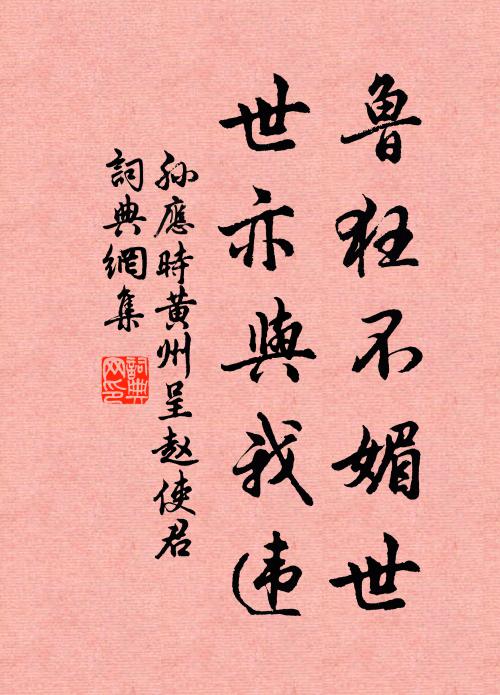 鲁狂不媚世
世亦與我违
孙應時黄州呈赵使君
詞典網集
詞典網印